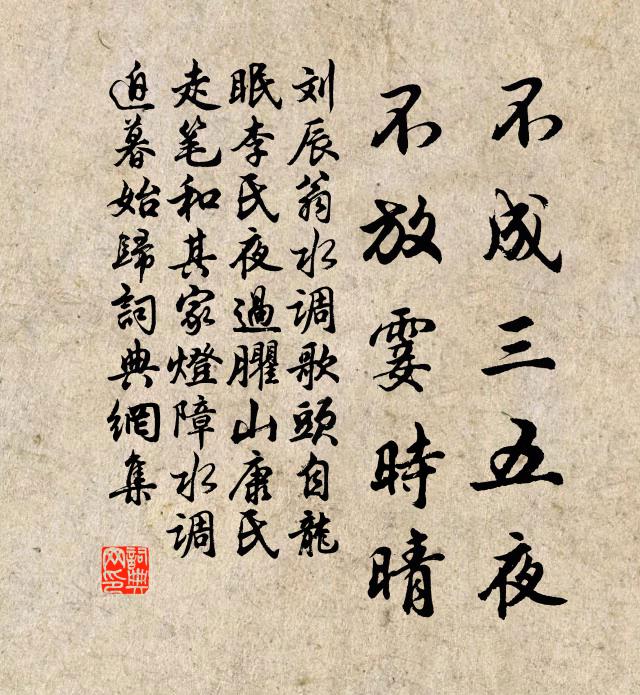 不成三五夜
不放霎時晴
刘辰翁水调歌頭自龍
眠李氏夜過臞山康氏
走笔和其家燈障水调
迫暮始歸詞典網集
詞典
网印